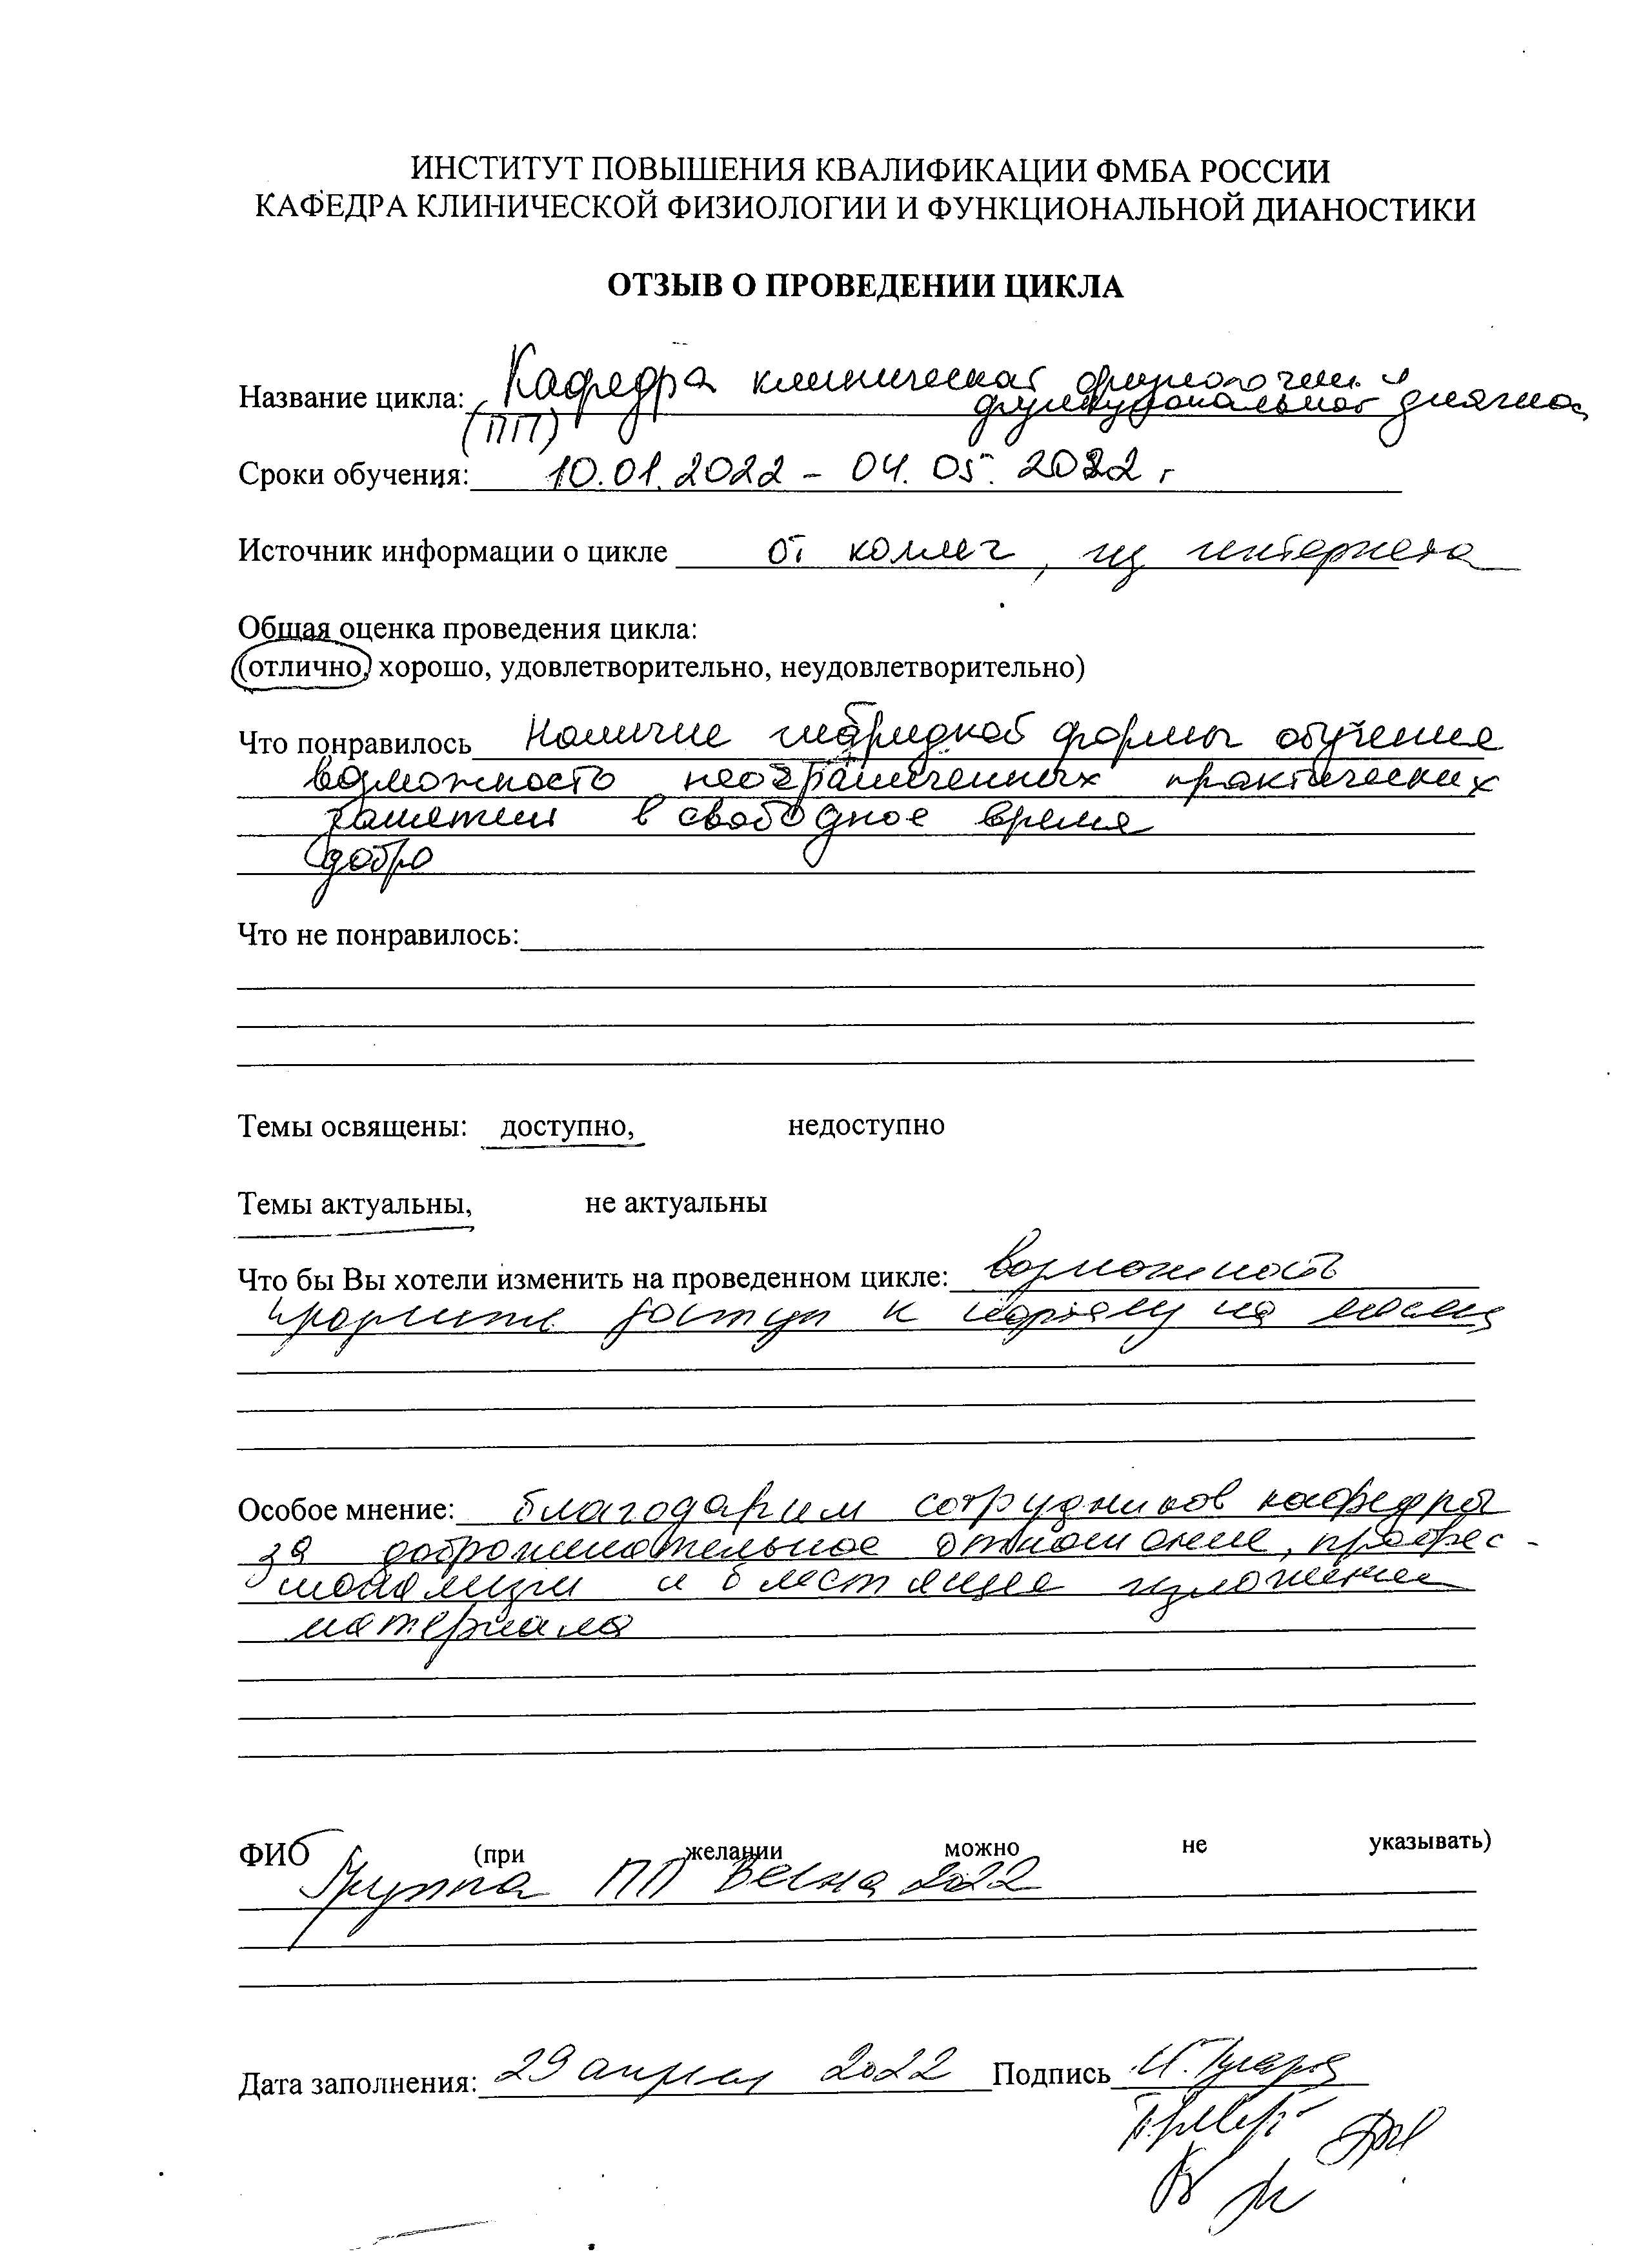 ИНСТИТУТ ПОВЫШЕНИЯ КВАЛИФИКАЦИИ ФМБА РОССИИ
КАФЕДРА КЛИНИЧЕСКОЙ ФИЗИОЛОГИИ И ФУНКЦИОНАЛЬНОЙ ДИАНОСТИКИ
ОТЗЫВ О ПРОВЕДЕНИИ ЦИКЛА
Название цикла: Кафедра клиническая физиологии и
функциональная диагнос
(ПП)
Сроки обучения: 10.01.2022 - 04.05.2022 г
Источник информации о цикле от коллег, из интернета
Общая оценка проведения цикла:
(отлично, хорошо, удовлетворительно, неудовлетворительно)
Что понравилось Наличие гибридной формы обучения
возможность неограниченных практических
занятий в свободное время
добро
Что не понравилось:
Темы освящены: доступно, недоступно
Темы актуальны, не актуальны
Что бы Вы хотели изменить на проведенном цикле: возможность
продлить доступ к порталу на месяц
Особое мнение: благодарим сотрудников кафедры
за доброжелательное отношение, профес-
сионализм и блестящее изложение
материала
ФИО (при желании можно не указывать)
Группа ПП Весна 2022
Дата заполнения: 29 апреля 2022 Подпись